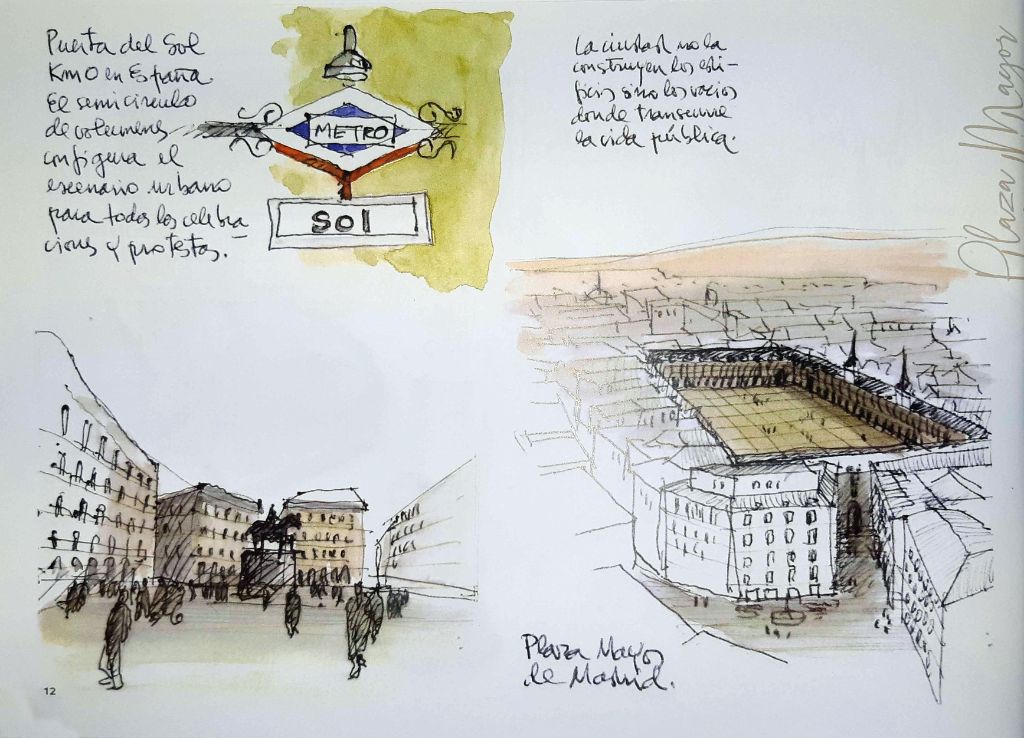 Puerta del Sol
Km 0 en España.
El semicírculo
de volúmenes
configura el
escenario urbano
para todas las celebra-
ciones y protestas.
METRO
SOL
La ciudad no la
construyen los edi-
ficios sino los vacíos
donde transcurre
la vida pública.
Plaza Mayor
Plaza Mayor
de Madrid.
12